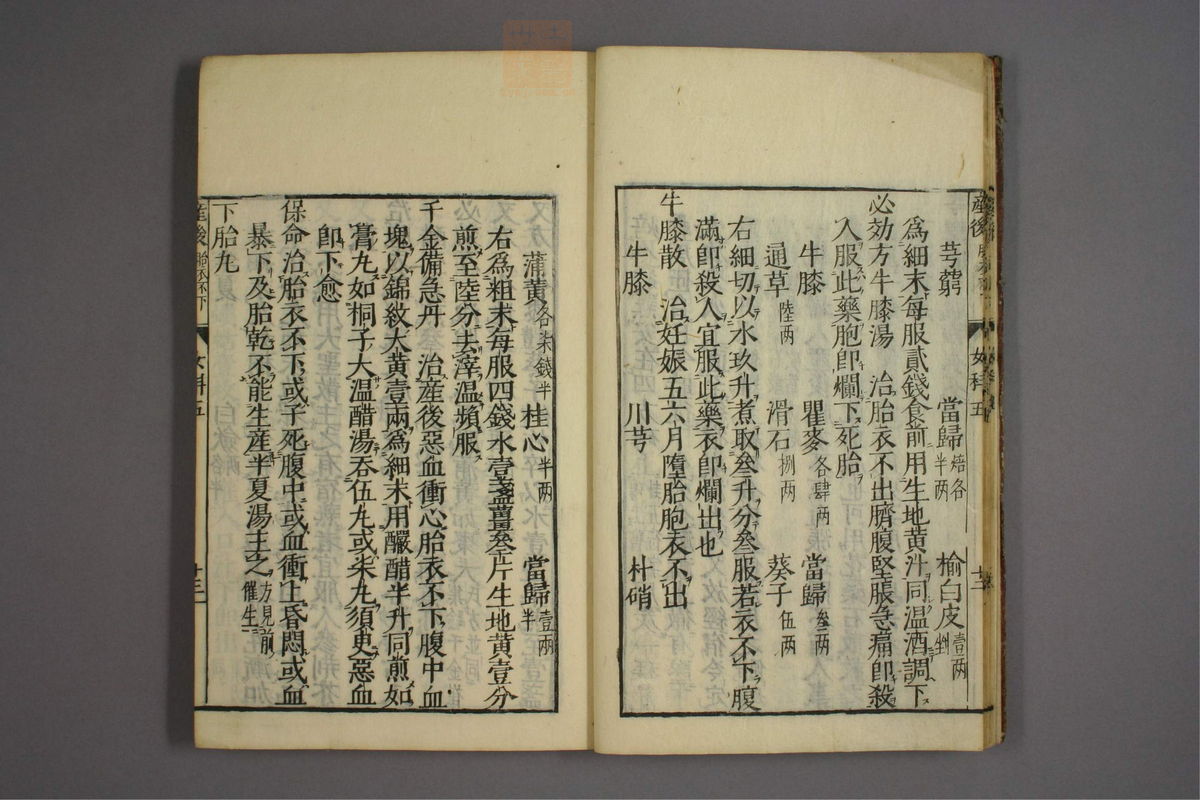 産後
女科五
芎藭 當歸焙各半兩 榆白皮壹兩剉
爲細末每服貳錢食前用生地黄汁同温酒調下
必効方牛膝湯 治胎衣不出臍腹堅脹急痛即殺
人服此藥胞即爛下死胎
牛膝 瞿麥各肆兩 當歸叁兩
通草陸兩 滑石捌兩 葵子伍兩
右細切以水玖升煮取叁升分叁服若衣不下腹
滿即殺人宜服此藥衣即爛出也
牛膝散 治妊娠五六月墮胎胞衣不出
牛膝 川芎 朴硝
蒲黄各柒錢半 桂心半兩 當歸壹兩半
右爲粗末每服四錢水壹盞薑叁片生地黄壹分
煎至陸分去滓温頻服
千金備急丹 治産後惡血衝心胎衣不下腹中血
塊以錦紋大黄壹兩爲細末用釅醋半升同煎如
膏丸如桐子大温醋湯吞伍丸或柒丸須臾惡血
即下愈
保命治胎衣不下或子死腹中或血衝上昏悶或血
暴下及胎乾不能生産半夏湯主之方見前催生
下胎丸
産後胎衣不下
女科五